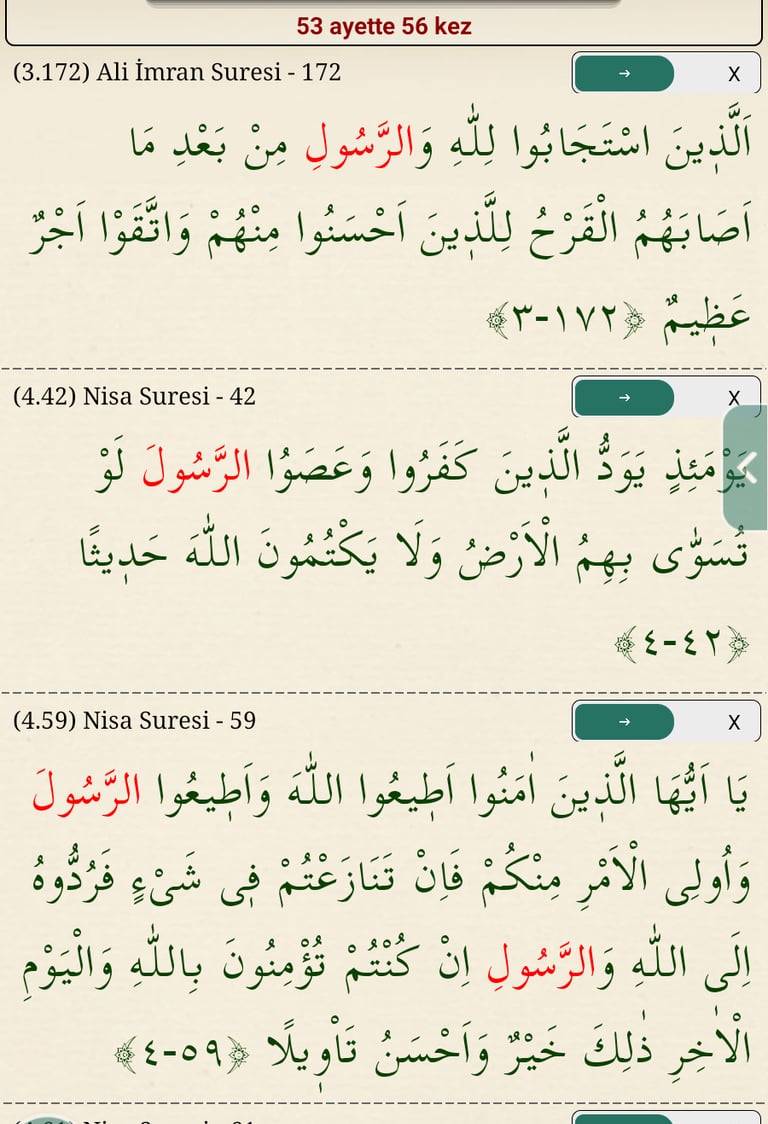 53 ayette 56 kez
(3.172) Ali İmran Suresi - 172 → X
اَلَّذ۪ينَ اسْتَجَابُوا لِلّٰهِ وَالرَّسُولِ مِنْ بَعْدِ مَا
اَصَابَهُمُ الْقَرْحُ لِلَّذ۪ينَ اَحْسَنُوا مِنْهُمْ وَاتَّقَوْا اَجْرٌ
عَظ۪يمٌ ﴿١٧٢-٣﴾
(4.42) Nisa Suresi - 42 → X
يَوْمَئِذٍ يَوَدُّ الَّذ۪ينَ كَفَرُوا وَعَصَوُا الرَّسُولَ لَوْ
تُسَوّٰى بِهِمُ الْاَرْضُ وَلَا يَكْتُمُونَ اللّٰهَ حَد۪يثًا
﴿٤٢-٤﴾
(4.59) Nisa Suresi - 59 → X
يَا اَيُّهَا الَّذ۪ينَ اٰمَنُوا اَط۪يعُوا اللّٰهَ وَاَط۪يعُوا الرَّسُولَ
وَاُولِى الْاَمْرِ مِنْكُمْ فَاِنْ تَنَازَعْتُمْ ف۪ى شَىْءٍ فَرُدُّوهُ
اِلَى اللّٰهِ وَالرَّسُولِ اِنْ كُنْتُمْ تُؤْمِنُونَ بِاللّٰهِ وَالْيَوْمِ
الْاٰخِرِ ذٰلِكَ خَيْرٌ وَاَحْسَنُ تَاْو۪يلًا ﴿٥٩-٤﴾